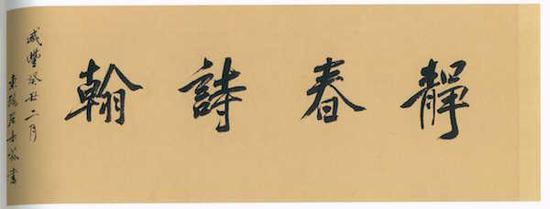 靜春詩翰
咸豐癸丑二月
書